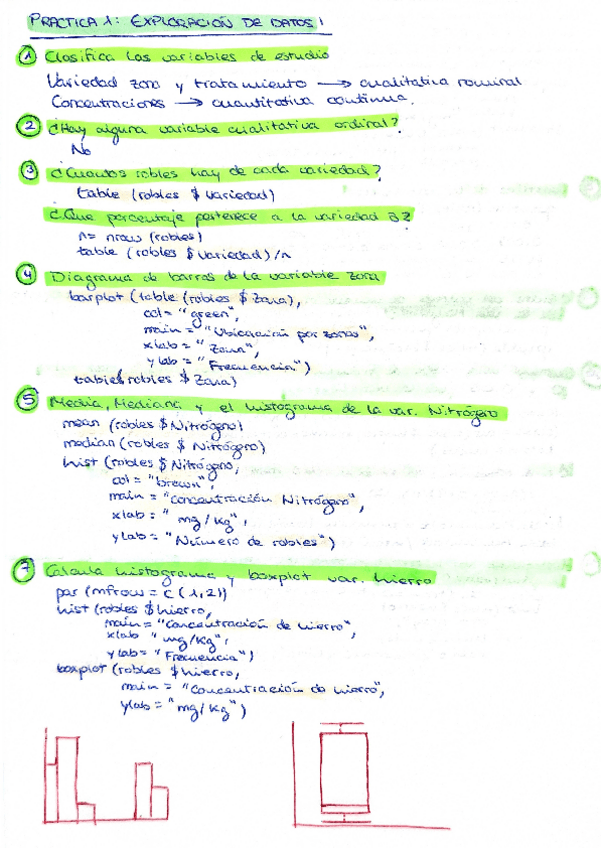 PRACTICA 1: EXPLORACIÓN DE DATOS
1 Clasifica las variables de estudio
Variedad zona y tratamiento → cualitativa nominal
Concentraciones → cuantitativa continua.
2 ¿Hay alguna variable cualitativa ordinal?
No
3 ¿Cuantos robles hay de cada variedad?
table (robles $ variedad)
¿Que porcentaje pertenece a la variedad
n= nrow (robles)
table (robles $ variedad) /n
4 Diagrama de barras de la variable zona
barplot (table (robles $ Zona),
col= "green",
main = "Ubicación por zonas",
xlab = "Zona",
ylab = "Frecuencia")
table(robles $ Zona)
5 Media, Mediana y el histograma de la var. Nitrógeno
mean (robles $ Nitrógeno)
median (robles $ Nitrógeno)
hist (robles $ Nitrógeno,
col = "brown",
main = "Concentración Nitrógeno",
xlab = "mg/Kg",
ylab= "Número de robles")
7 Calcula histograma y boxplot var. hierro
par (mfrow = c (1,2))
hist (robles $ hierro,
main= "Concentración de hierro",
xlab "mg/Kg",
ylab= "Frecuencia")
boxplot (robles $ hierro,
main = "Concentración de hierro",
ylab= "mg/Kg")